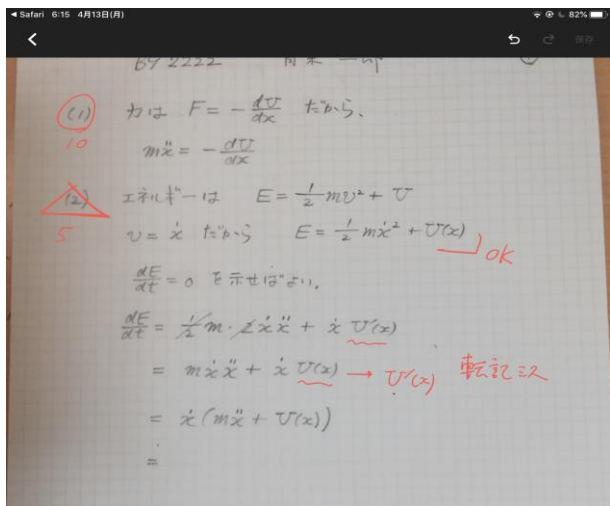 Safari 6:15 4月13日(月) 82%
保存
BY 2222
(1) 力は F = - dU/dx だから、
10
mẍ = - dU/dx
(2) エネルギーは E = 1/2 mv² + U
5 v = ẋ だから E = 1/2 mẋ² + U(x)
OK
dE/dt = 0 を示せばよい。
dE/dt = 1/2 m · 2 ẋẍ + ẋ U'(x)
= mẋẍ + ẋ U(x) → U'(x) 転記ミス
= ẋ (mẍ + U(x))
=